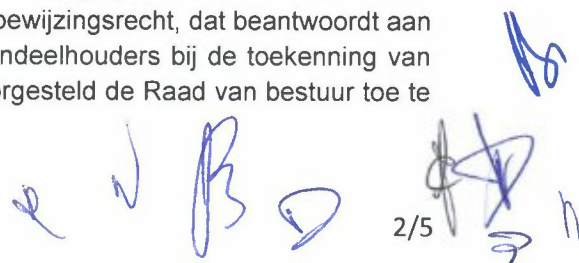 bewijzingsrecht, dat beantwoordt aan
ndeelhouders bij de toekenning van
orgesteld de Raad van bestuur toe te
2/5